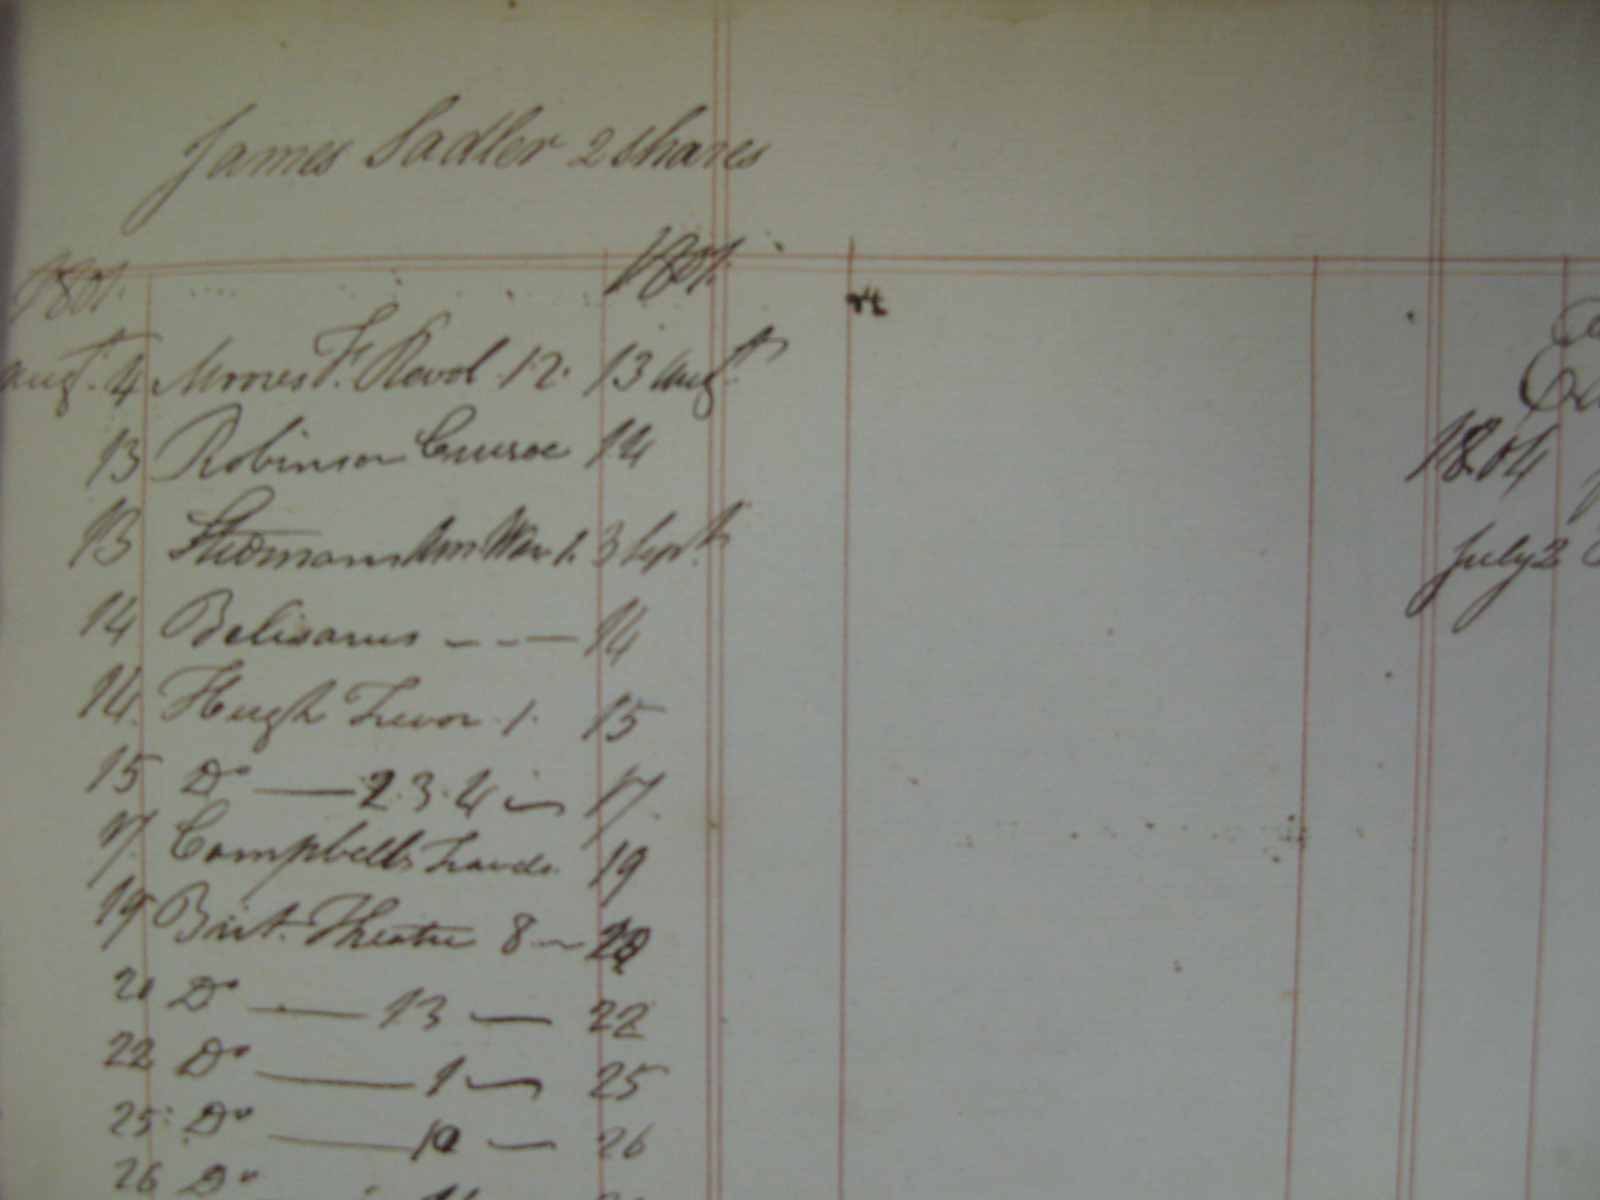 James Sadler 2 shares
1801. 1801.
Augt. 4 Moores F. Revol. 1.2. 13 Augt
13 Robinson Crusoe 14
13 Stedmans Am War 1. 3 Sept.
14 Belisarus - - - 14
14. Hugh Trevor . 1. 15
15 Do — 2.3.4 — 17.
17. Campbells Travels. 19
19 Brit. Theatre 8 — 20
20 Do — 13 — 22
22 Do — 1 — 25
25 Do — 10 — 26
26 Do
1804
July 2